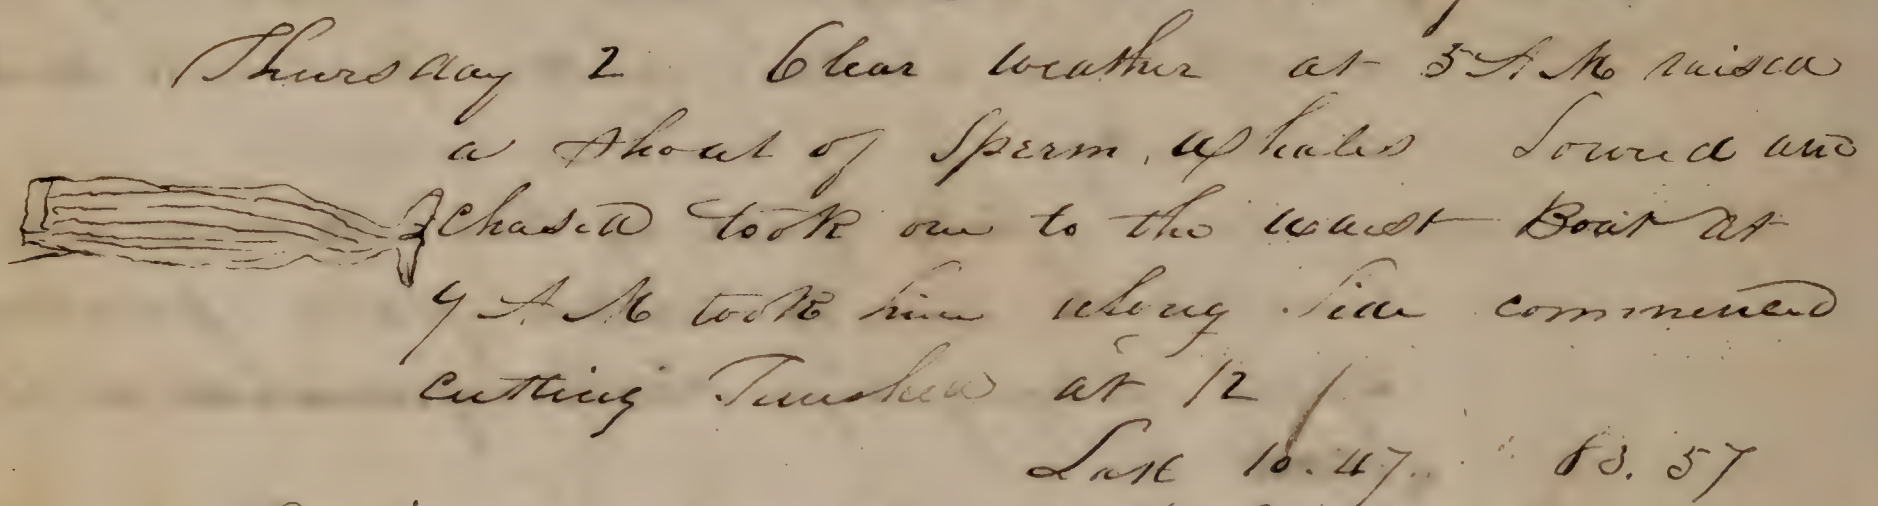 Thursday 2 Clear weather at 5 A M raised
a shoal of Sperm whales Lowered and
chased took one to the waist Boat at
9 A M took him along side commenced
cutting Finished at 12
Latt 10.47 83.57